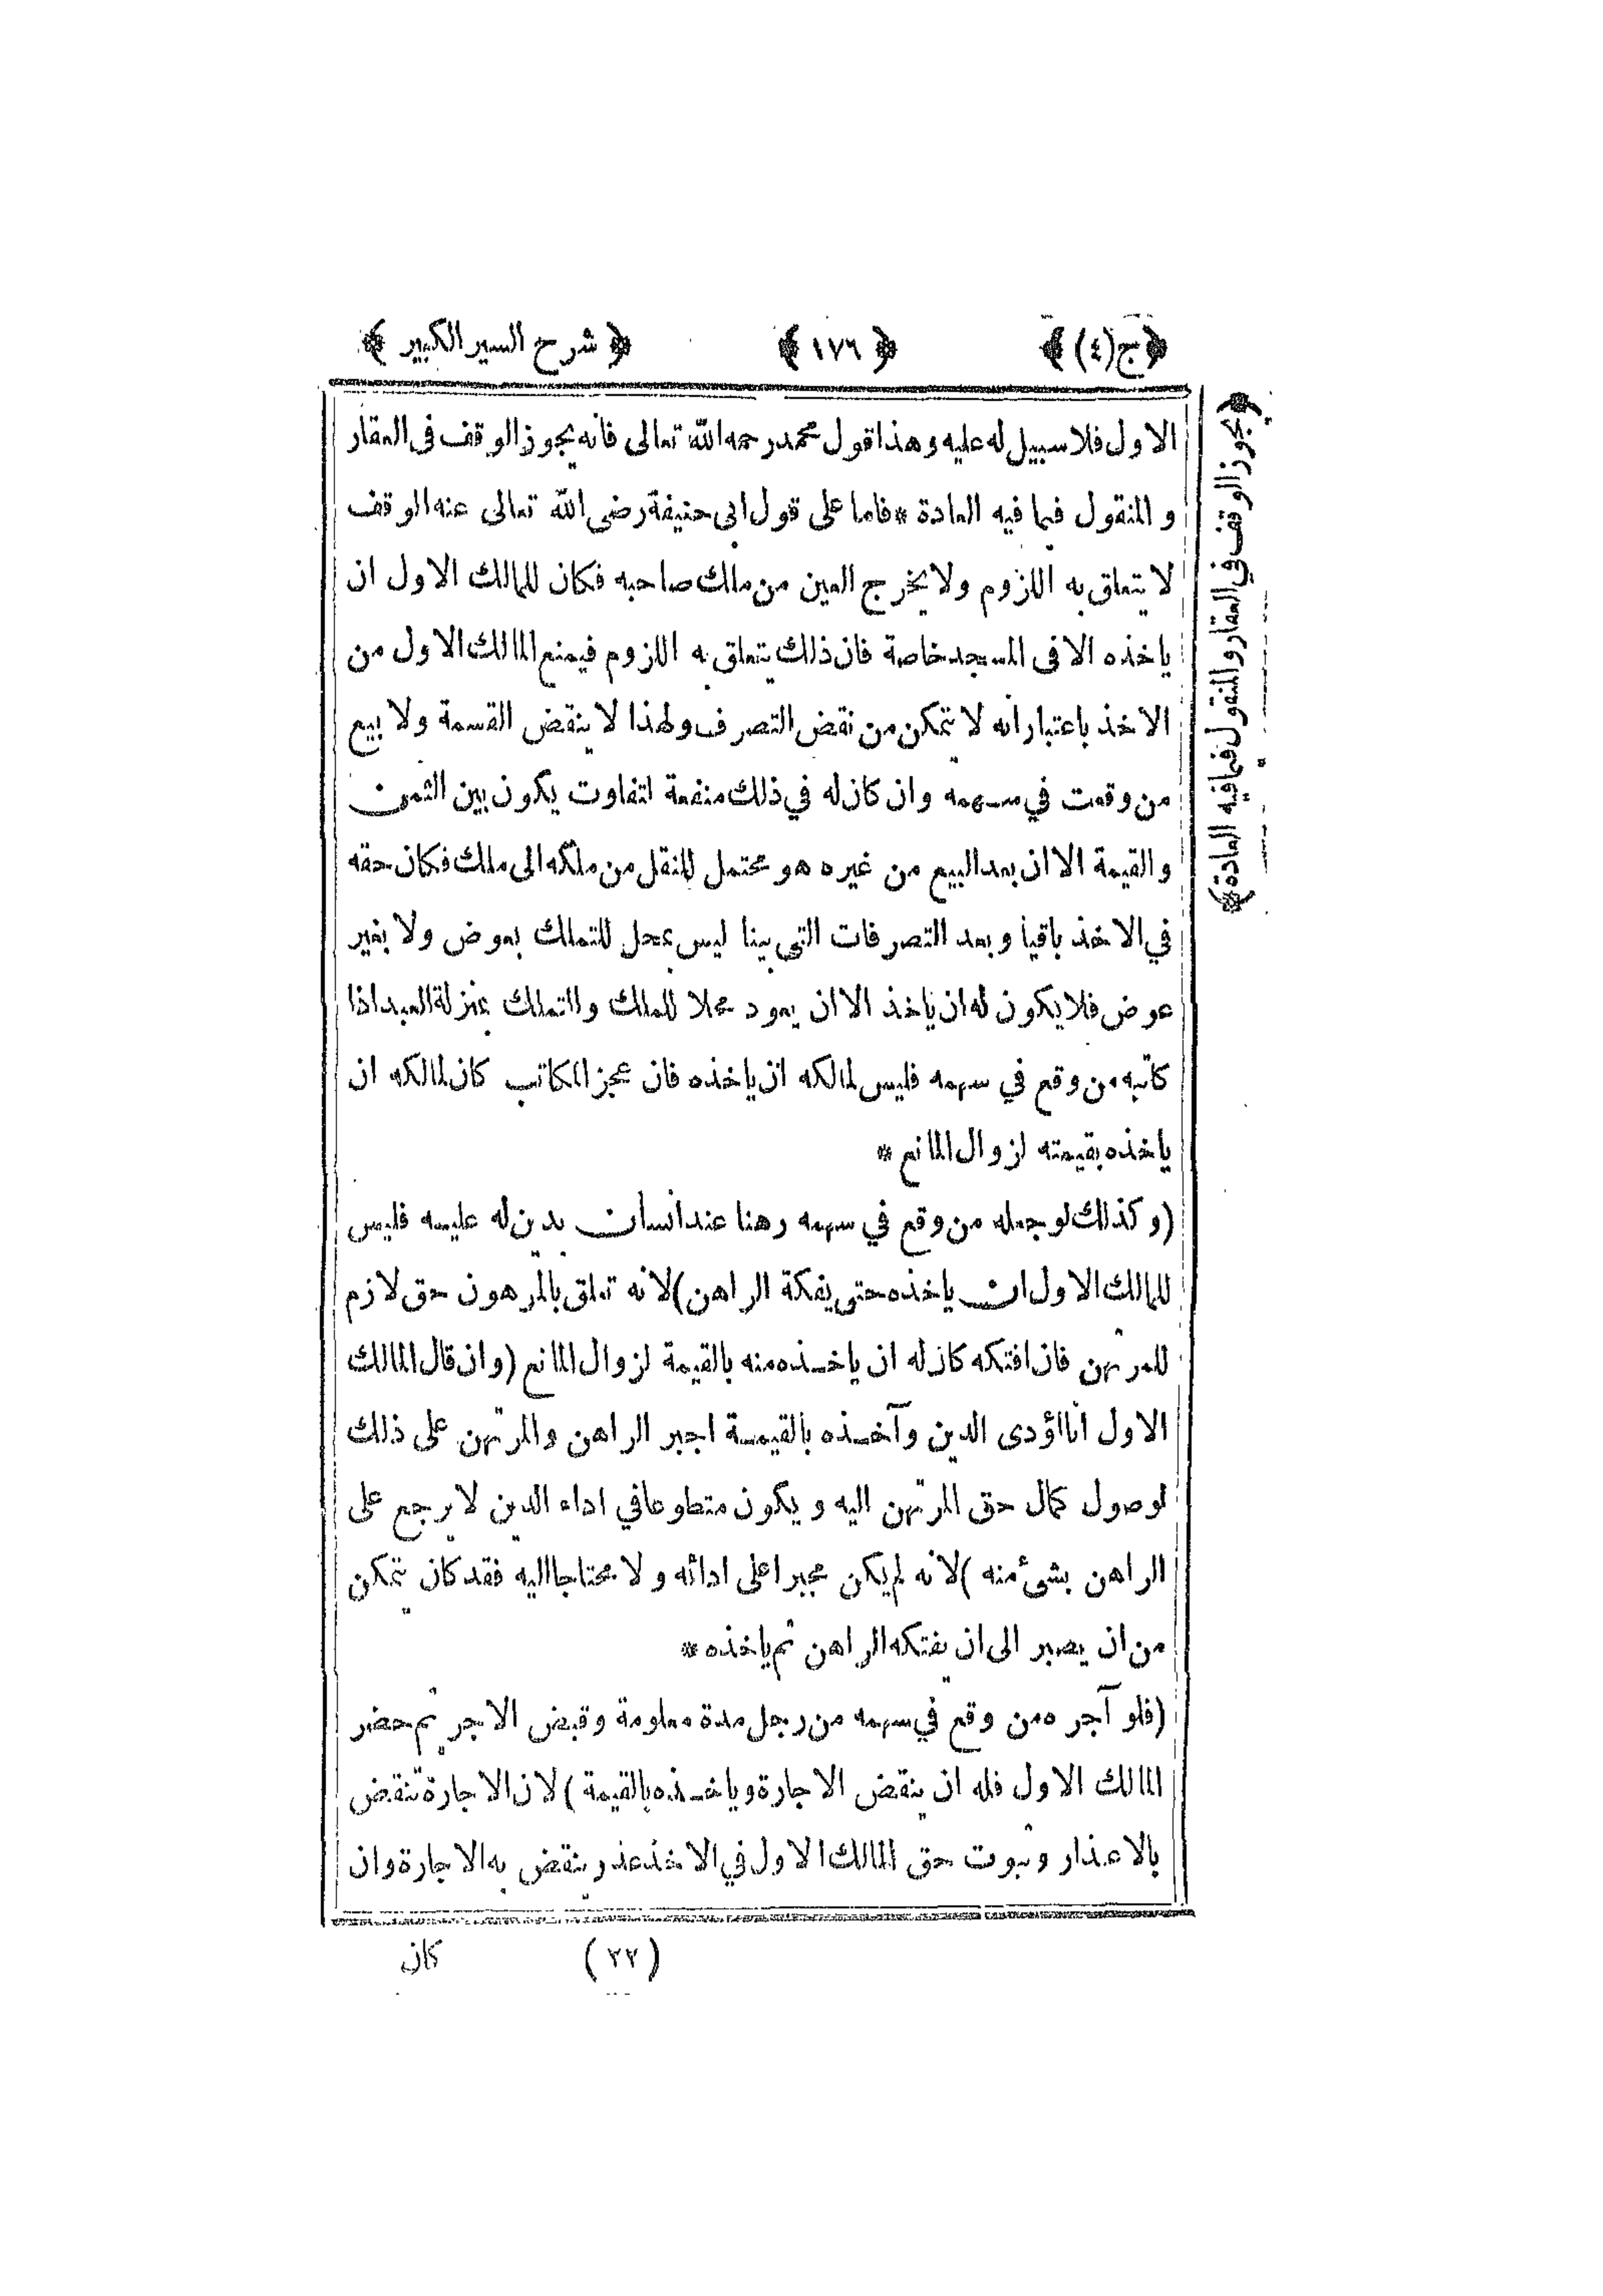 ﴿ج(٤)﴾ ﴿١٧٦﴾ ﴿شرح السير الكبير﴾
الاول فلا سبيل له عليه وهذا قول محمد رحمه الله تعالى فانه يجوز الوقف فى العقار
و المنقول فيما فيه العادة * فاما على قول ابى حنيفة رضى الله تعالى عنه الوقف
لا يتعلق به اللزوم ولا يخرج العين من ملك صاحبه فكان للمالك الاول ان
ياخذه الا فى المسجد خاصة فان ذلك يتعلق به اللزوم فيمنع المالك الاول من
الاخذ باعتبار انه لا تمكن من نقض التصرف ولهذا لا ينقض القسمة ولا بيع
من وقعت في سهمه وان كان له في ذلك منفعة لتفاوت يكون بين الثمن
والقيمة الا ان بعد البيع من غيره هو محتمل للنقل من ملكه الى ملك فكان حقه
في الاخذ باقيا وبعد التصرفات التى بينا ليس بمحل للتملك بعوض ولا بغير
عوض فلا يكون له ان ياخذ الا ان يعود محلا للملك والتملك بمنزلة العبد اذا
كاتبه من وقع في سهمه فليس لمالكه ان ياخذه فان عجز المكاتب كان لمالكه ان
ياخذه بقيمته لزوال المانع *
(وكذلك لو جعله من وقع في سهمه رهنا عند انسان بدين له عليه فليس
للمالك الاول ان ياخذه حتى يفكة الراهن) لانه تعلق بالمرهون حق لازم
للمرتهن فان افتكه كان له ان ياخذه منه بالقيمة لزوال المانع (وان قال المالك
الاول انا اؤدى الدين وآخذه بالقيمة اجبر الراهن والمرتهن على ذلك
لوصول كمال حق المرتهن اليه ويكون متطوعا في اداء الدين لا يرجع على
الراهن بشئ منه) لانه لم يكن مجبرا على ادائه ولا محتاجا اليه فقد كان يتمكن
من ان يصبر الى ان يفتكه الراهن ثم ياخذه *
(فلو آجره من وقع في سهمه من رجل مدة معلومة وقبض الاجر ثم حضر
المالك الاول فله ان ينقض الاجارة وياخذه بالقيمة) لان الاجارة تنقض
بالاعذار وثبوت حق المالك الاول في الاخذ عذر ينقض به الاجارة وان
(٢٢) كان
﴿يجوز الوقف في العقار والمنقول فيما فيه العادة﴾